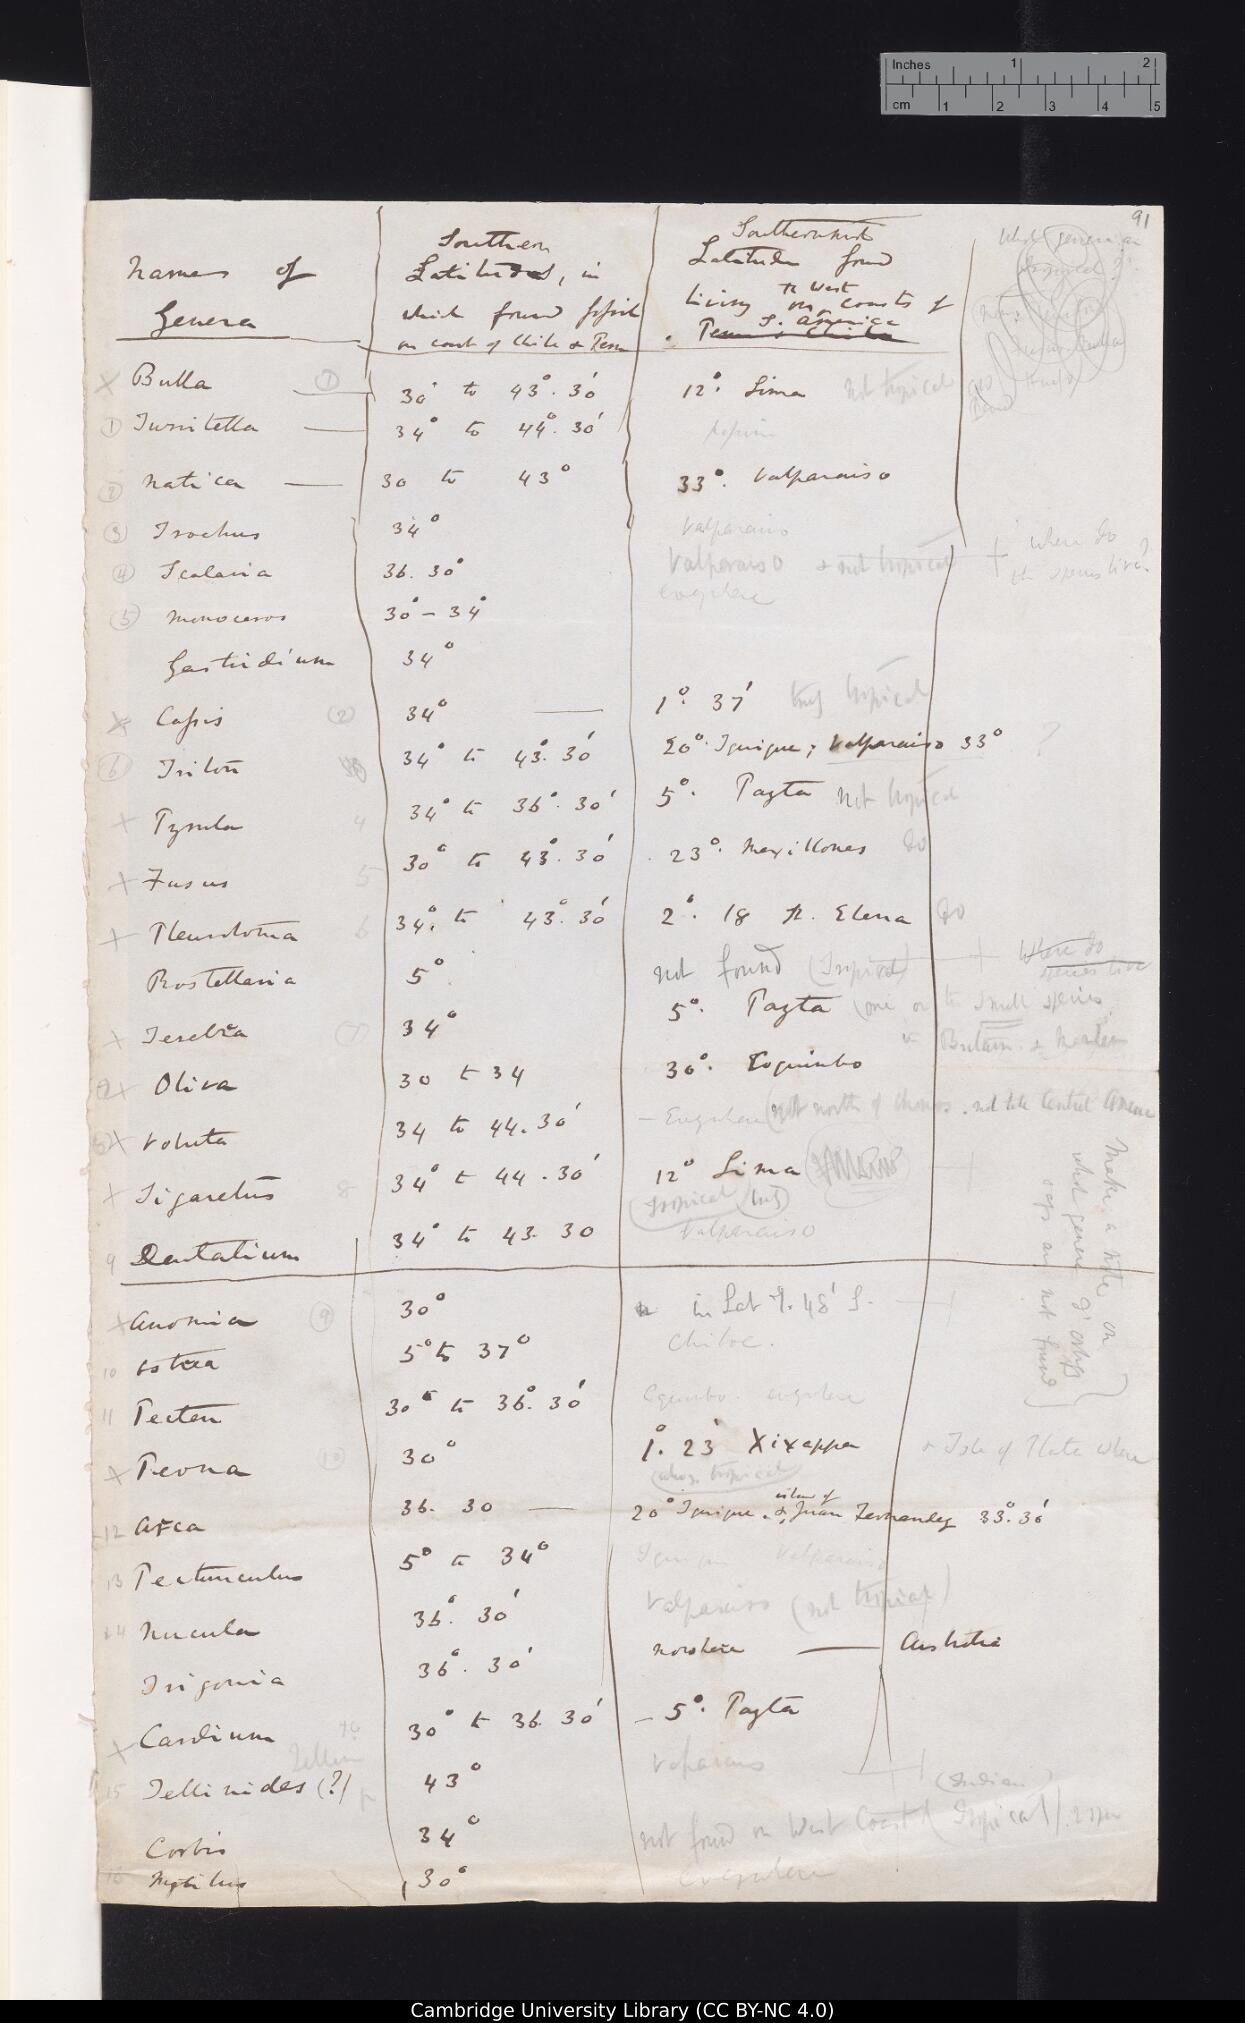 Inches 1 2
cm 1 2 3 4 5
91
Names of Genera
Southern Latitudes, in
which found fossil
on coast of Chile & Peru
Southernmost
Latitude found
living on the West coasts of
S. America
Peru & Chile
Bulla 1 30° to 43°. 30' 12°. Lima not tropical
1 Turritella 34° to 44°. 30'
2 Natica 30 to 43° 33°. Valparaiso
3 Trochus 34° Valparaiso
4 Scalaria 36. 30° Valparaiso & not tropical + where do
the species live?
5 Monoceros 30° – 34°
Gastridium 34°
X Cassis 2 34° 1°. 37' truly tropical
6 Triton 34° to 43°. 30' 20°. Iquique; Valparaiso 33° ?
+ Pyrula 4 34° to 36°. 30' 5°. Payta not tropical
+ Fusus 5 30° to 43°. 30' 23°. Mexillones do
+ Pleurotoma 6 34°. to 43°. 30' 2°. 18 St. Elena do
Rostellaria 5° not found (Tropical) + Where do
species live
+ Terebra 7 34° 5°. Payta (one or two small species
in Britain &
Oliva 30 to 34 30°. Coquimbo
Voluta 34 to 44. 30' north of Chonos. not like Central America
+ Sigaretus 8 34° to 44. 30' 12° Lima
tropical
9 Dentalium 34° to 43. 30 Valparaiso
Anomia 9 30° in Lat 9. 48' S.
10 Ostrea 5° to 37° Chiloe.
11 Pecten 30° to 36°. 30'
X Perna 10 30° 1°. 23' Xixappa & Isle of Plata where
tropical
12 Arca 36. 30 20° Iquique. & island of Juan Fernandez 33°. 30'
13 Pectunculus 5° to 34° Iquique Valparaiso
14 Nucula 36°. 30' Valparaiso (not tropical)
Trigonia 36°. 30' nowhere — Australia
X Cardium 30° to 36. 30' 5°. Payta
Tellina
15 Tellinides (?) 43° Valparaiso
(Indian)
Corbis 34° not found on West Coast (Tropical)
16 Mytilus 30°
Make a note on
what genera
are not found
Cambridge University Library (CC BY-NC 4.0)